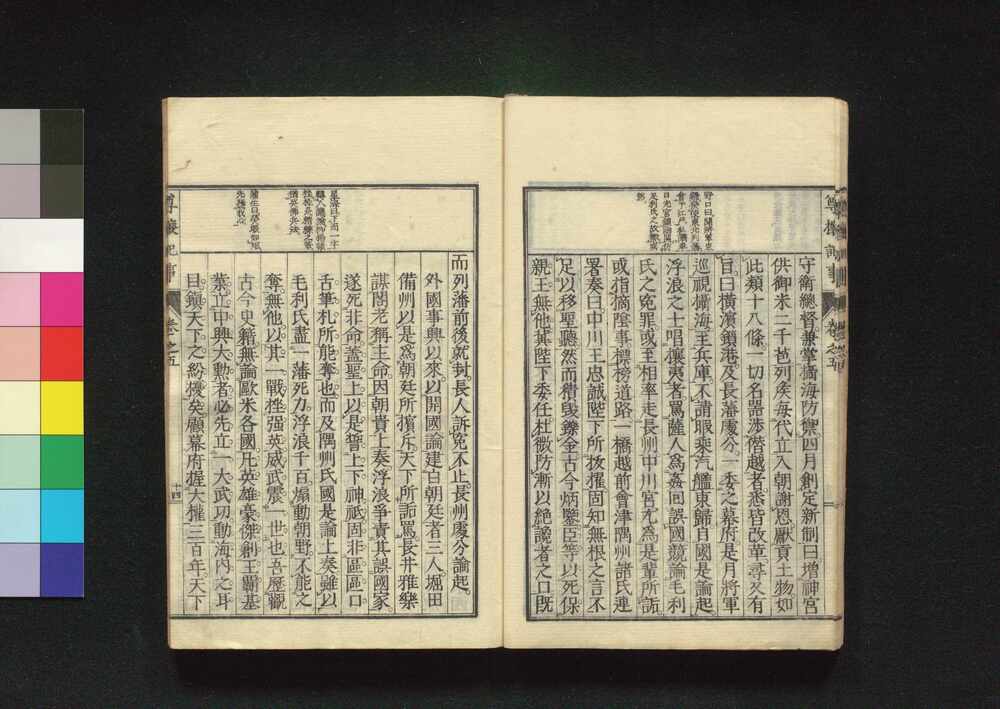 守衛總督兼掌攝海防禦四月創定新制曰增神宮
供御米二千苞列矦每代立入朝謝恩獻貢土物如
此類十八條一切名器涉僭越者悉皆改革尋又有
旨曰橫濱鎖港及長藩處分一委之幕府是月將軍
巡視攝海至兵庫不請暇乘汽艦東歸自國是論起
浮浪之士唱攘夷者罵薩人爲姦回誤國競論毛利
氏之冤罪或至相率走長州中川宮尤爲是輩所詬
或指摘陰事標榜道路一橋越前會津隅州諸氏連
署奏曰中川王忠誠陛下所拔擢固知無根之言不
足以移聖聽然而積毀鑠金古今炳鑒臣等以死保
親王無他冀陛下委任杜微防漸以絕讒者之口既
而列藩前後就封長人訴冤不止長州處分論起
外國事興以來以開國論建白朝廷者三人堀田
備州以是爲朝廷所擯斥天下所詬罵長井雅樂
謀閣老稱主命因朝貴上奏浮浪爭責其誤國家
遂死非命蓋聖上以是誓上下神祗固非區區口
舌筆札所能奪也而及隅州氏國是論上奏雖以
毛利氏盡一藩死力浮浪千百煽動朝野不能之
奪無他以其一戰挫强英威武震一世也吾歷觀
古今史籍無論歐米各國凡英雄豪傑創王霸基
業立中興大勲者必先立一大武功動海內之耳
目鎭天下之紛擾矣顧幕府握大權三百年天下
卷之五
十四